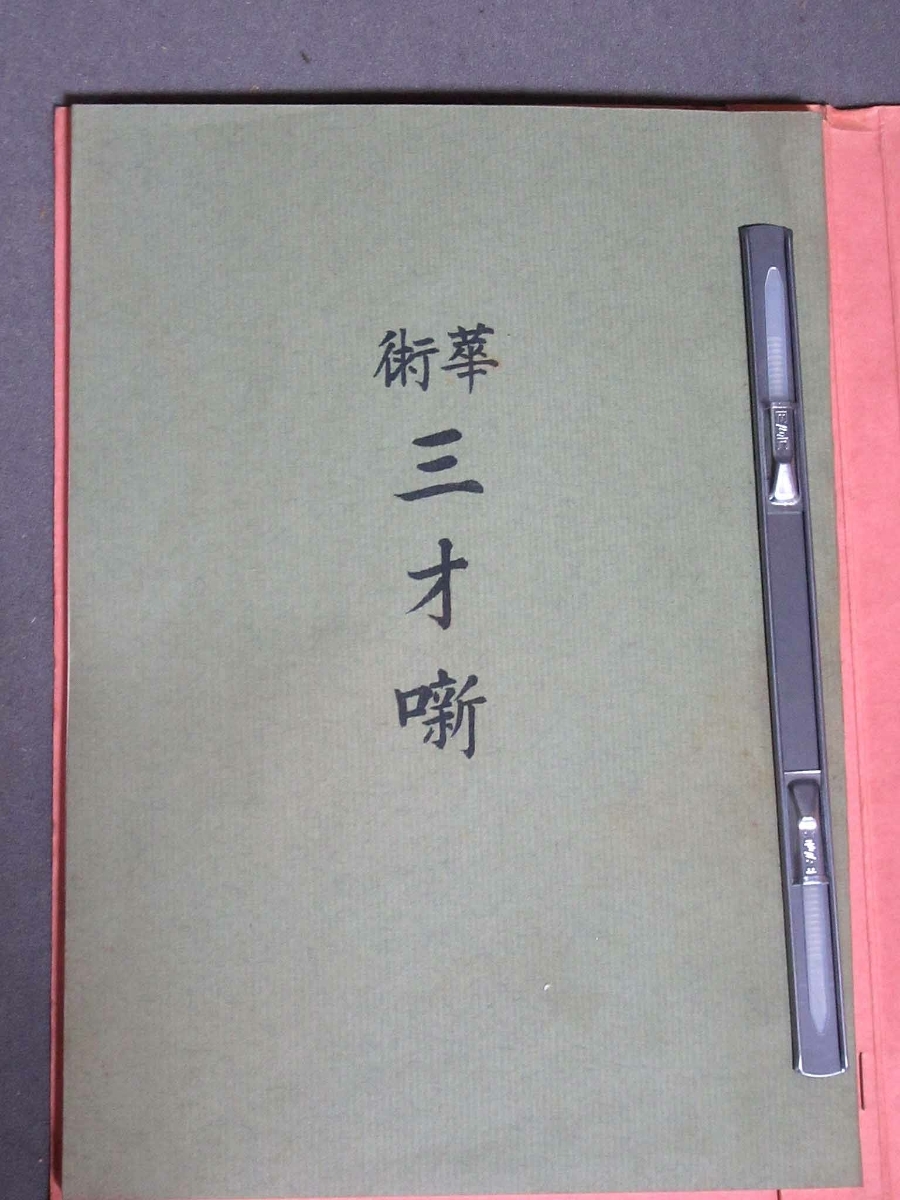 華術
三才噺